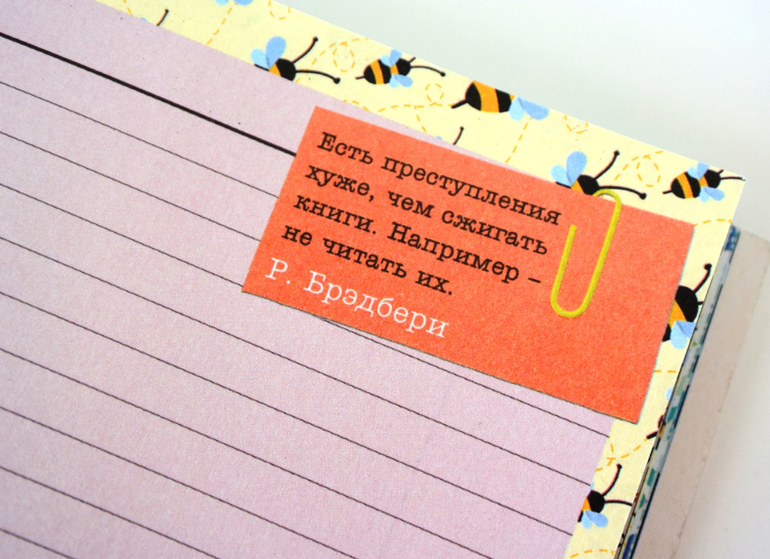 Есть преступления
хуже, чем сжигать
книги. Например –
не читать их.
Р. Брэдбери